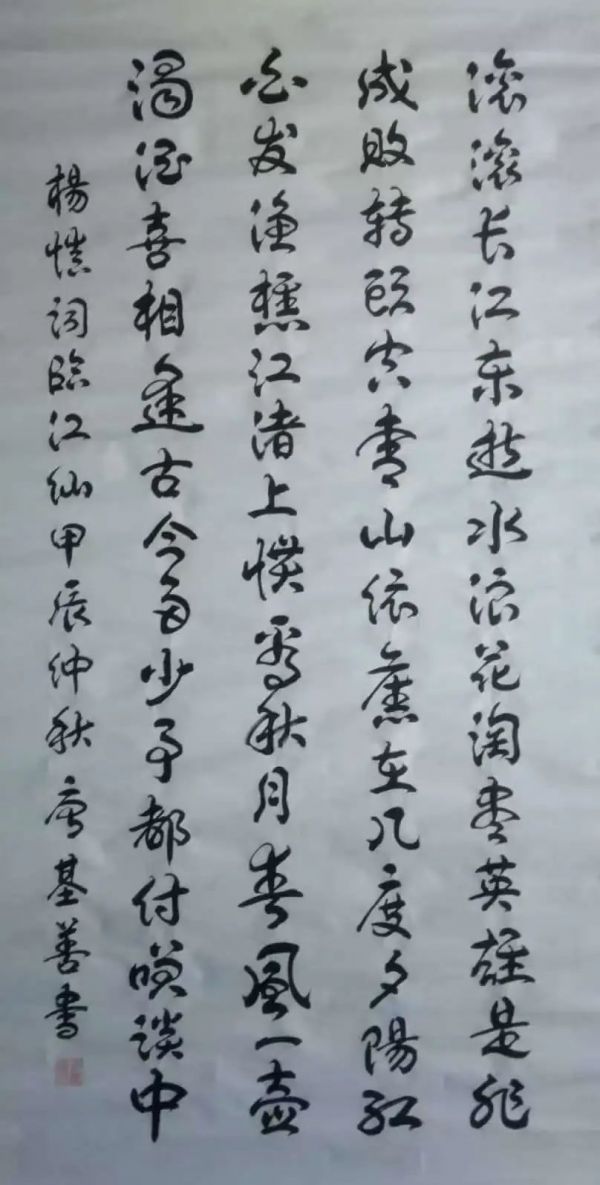 滚滚长江东逝水浪花淘尽英雄是非
成败转头空青山依旧在几度夕陽红
白发渔樵江渚上惯看秋月春风一壶
濁酒喜相逢古今多少事都付笑談中
楊慎词臨江仙甲辰仲秋 基善书